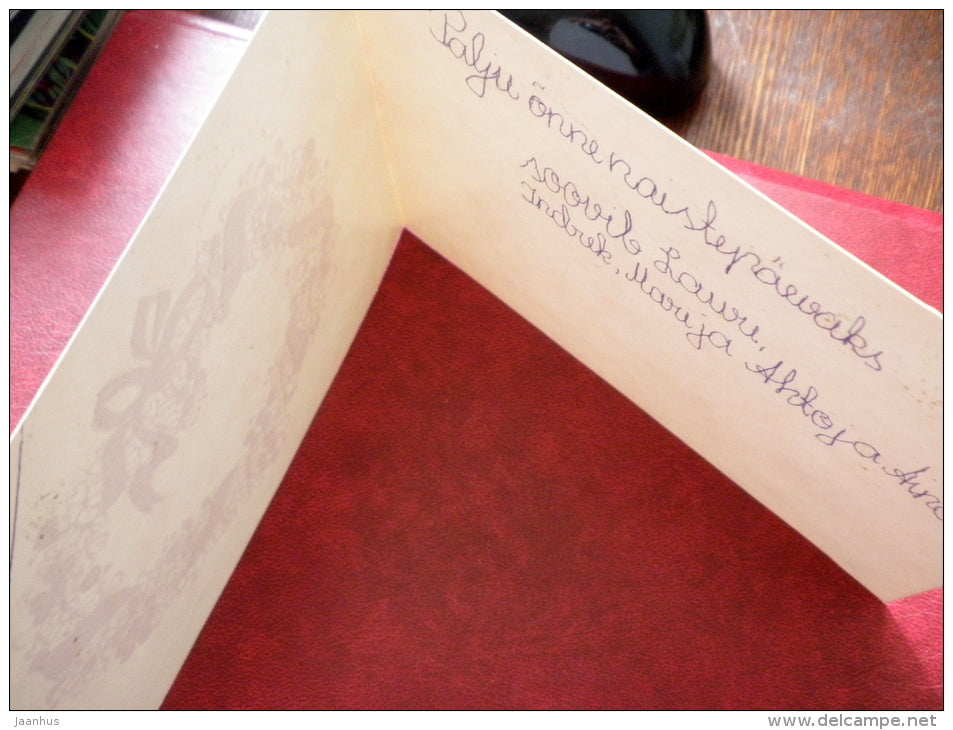 Palju õnne naistepäevaks
soovib Lauri,
Indrek, Mari ja Ahto ja Aine
Jaanhus
www.delcampe.net